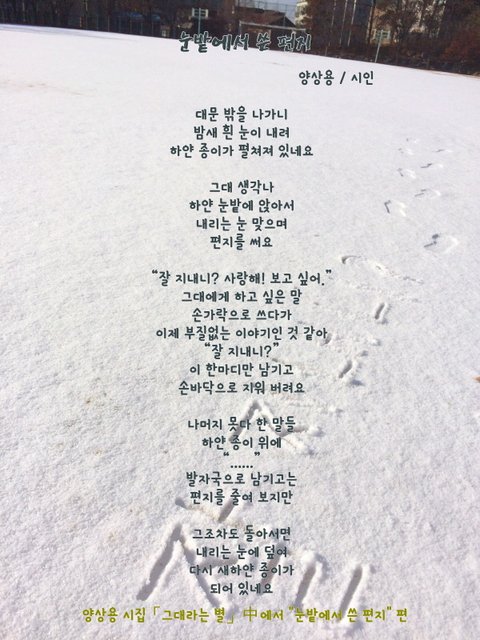 눈밭에서 쓴 편지
양상용 / 시인
대문 밖을 나가니
밤새 흰 눈이 내려
하얀 종이가 펼쳐져 있네요
그대 생각나
하얀 눈밭에 앉아서
내리는 눈 맞으며
편지를 써요
“잘 지내니? 사랑해! 보고 싶어.”
그대에게 하고 싶은 말
손가락으로 쓰다가
이제 부질없는 이야기인 것 같아
“잘 지내니?”
이 한마디만 남기고
손바닥으로 지워 버려요
나머지 못다 한 말들
하얀 종이 위에
“......”
발자국으로 남기고는
편지를 줄여 보지만
그조차도 돌아서면
내리는 눈에 덮여
다시 새하얀 종이가
되어 있네요
양상용 시집「그대라는 별」中에서 "눈밭에서 쓴 편지" 편